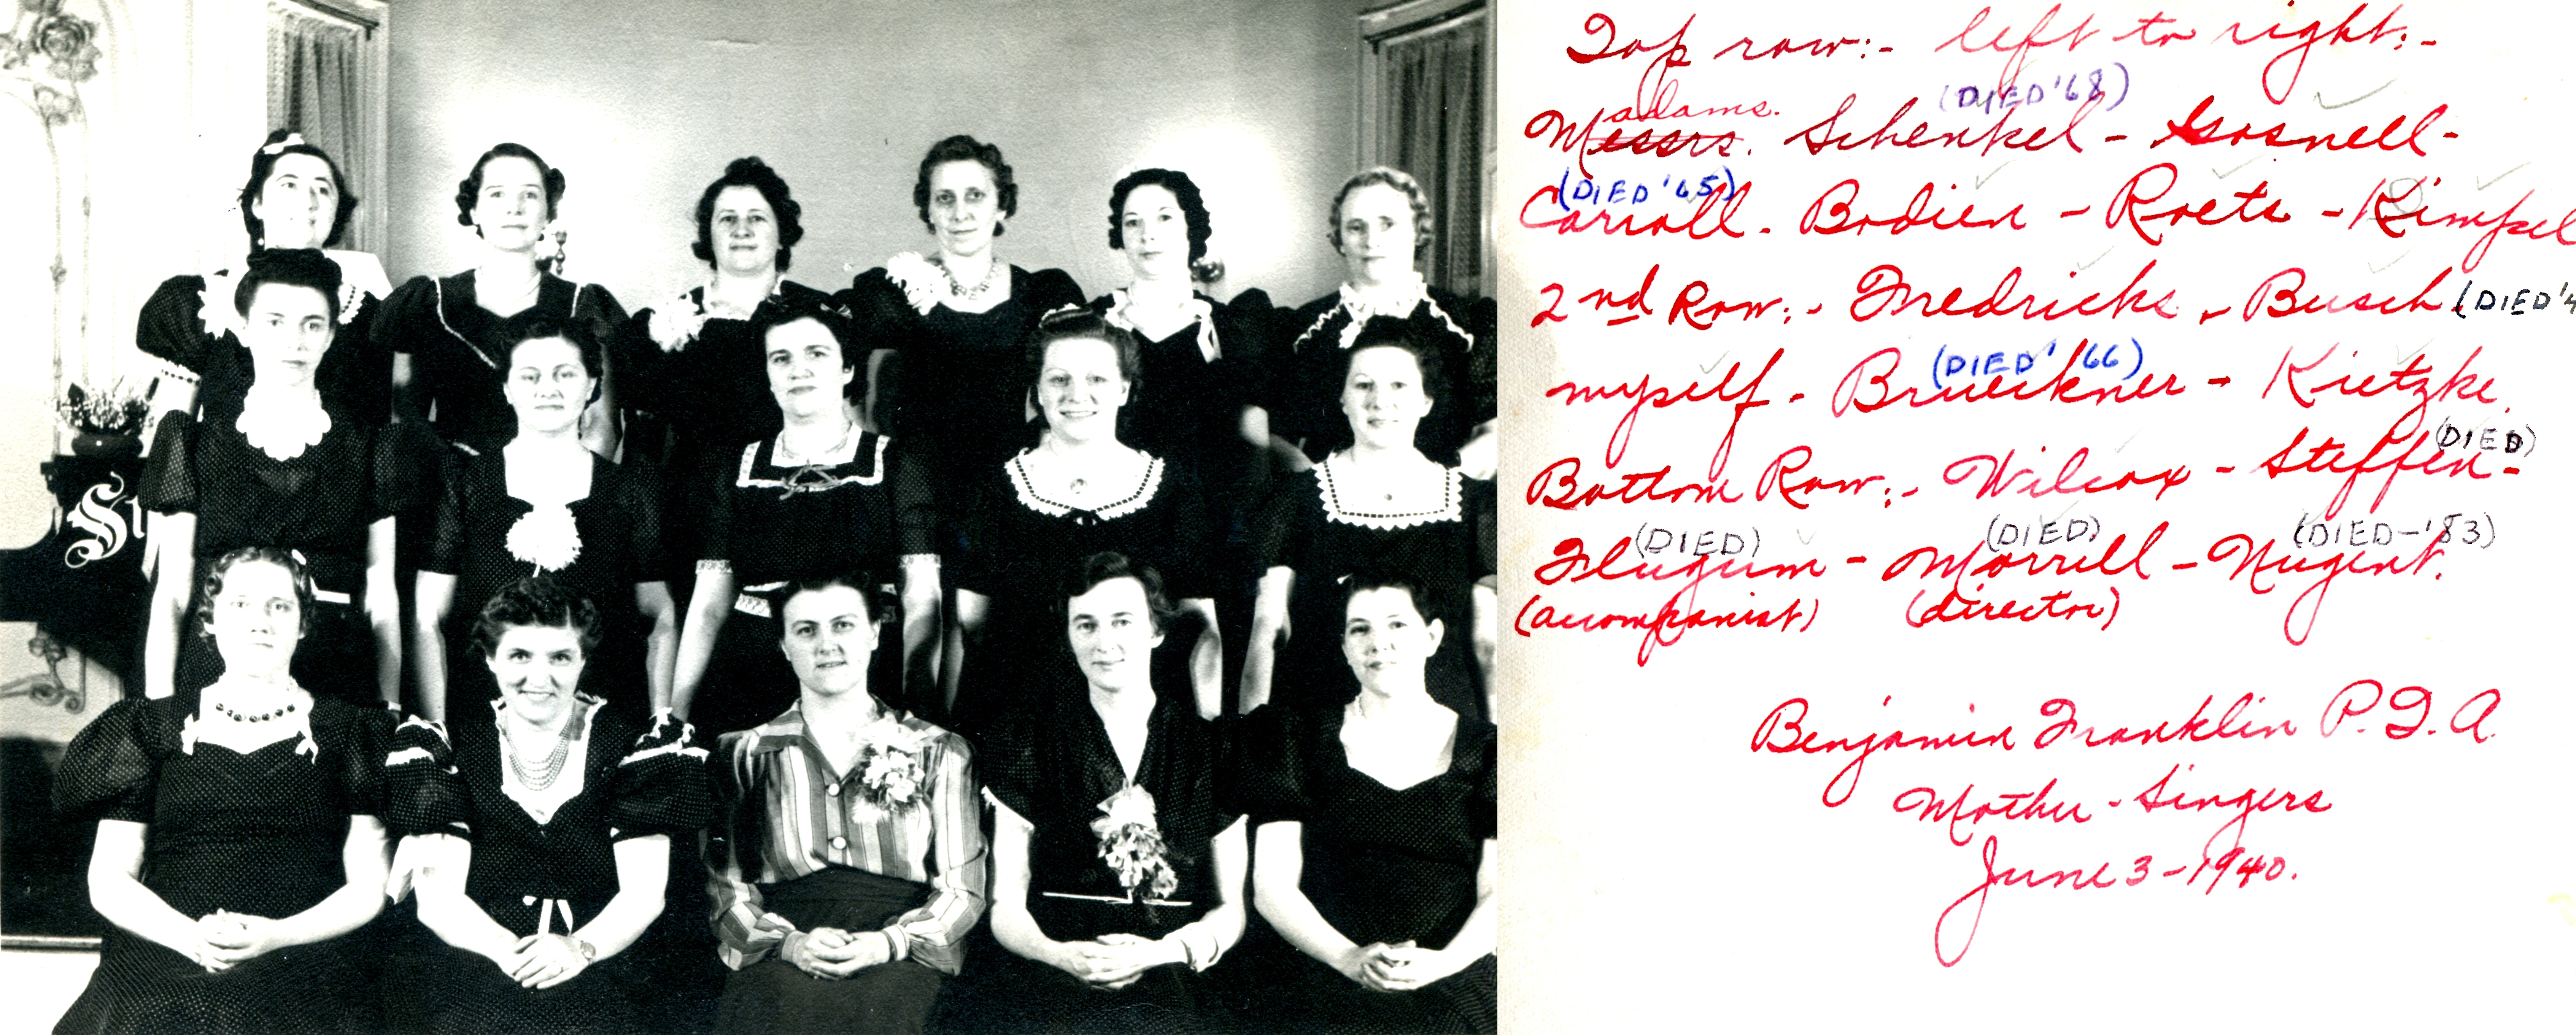 St
Top row:- left to right:-
adams. (DIED '68)
Messrs. Schenkel - Gosnell-
(DIED '65)
Carroll. Bodien - Roets - Kimpel
2nd Row:- Fredricks - Busch (DIED '4
(DIED '66)
myself - Brueckner - Kietzke.
(DIED)
Bottom Row:- Wilcox - Steffen-
(DIED) (DIED) (DIED-'83)
Flugum - Morrell - Nugent.
(accompanist) (director)
Benjamin Franklin P.T.A.
Mother-Singers
June 3-1940.